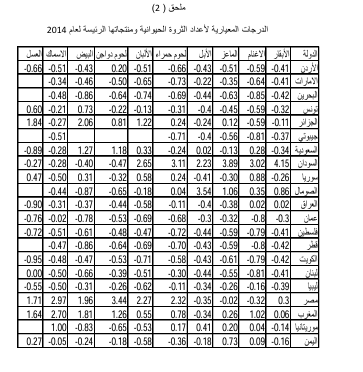 ملحق ( 2 )
الدرجات المعيارية لأعداد الثروة الحيوانية ومنتجاتها الرئيسة لعام 2014
الدولة الأبقار الاغنام الماعز الأبل لحوم حمراء الألبان لحوم دواجن البيض الاسماك العسل
الأردن -0.41 -0.59 -0.51 -0.43 -0.66 -0.51 0.20 -0.43 -0.51 -0.66
الامارات -0.41 -0.66 -0.35 -0.22 -0.73 -0.65 -0.50 -0.46 -0.34
البحرين -0.42 -0.85 -0.63 -0.44 -0.69 -0.64 -0.86 -0.48
تونس -0.32 -0.59 -0.45 -0.4 -0.31 -0.13 -0.22 0.73 -0.21 0.60
الجزائر -0.11 -0.59 0.12 -0.24 0.24 1.22 0.81 2.06 -0.27 1.84
جيبوتي -0.37 -0.81 -0.56 -0.4 -0.71 -0.51
السعودية -0.34 0.28 -0.13 0.02 -0.24 0.33 1.18 1.27 -0.28 -0.89
السودان 4.15 3.02 3.89 2.23 3.11 2.65 -0.47 -0.40 -0.28 -0.27
سوريا -0.26 0.88 -0.30 -0.41 0.24 0.58 -0.32 0.31 -0.50 0.47
الصومال 0.86 0.35 1.06 3.54 0.04 -0.18 -0.65 -0.87 -0.44
العراق 0.02 0.02 -0.38 -0.4 -0.11 -0.58 -0.44 -0.37 -0.31 -0.90
عمان -0.3 -0.8 -0.32 -0.3 -0.68 -0.69 -0.53 -0.78 -0.02 -0.76
فلسطين -0.41 -0.79 -0.59 -0.44 -0.72 -0.47 -0.48 -0.61 -0.51 -0.72
قطر -0.42 -0.8 -0.59 -0.43 -0.70 -0.69 -0.64 -0.86 -0.47
الكويت -0.42 -0.79 -0.61 -0.43 -0.58 -0.71 -0.53 -0.47 -0.48 -0.95
لبنان -0.41 -0.81 -0.55 -0.44 -0.30 -0.51 -0.39 -0.56 -0.50 0.00
ليبيا -0.39 -0.16 -0.26 -0.34 -0.11 -0.62 -0.26 -0.31 -0.50 -0.55
مصر 0.3 -0.32 -0.02 -0.35 2.32 2.27 3.44 1.96 2.97 1.71
المغرب 0.06 1.02 0.26 -0.34 0.78 0.55 1.26 1.81 2.70 1.64
موريتانيا -0.14 0.04 0.20 0.41 0.17 -0.53 -0.65 -0.83 1.00
اليمن -0.16 0.09 0.73 -0.18 -0.36 -0.58 -0.18 -0.24 -0.05 0.27